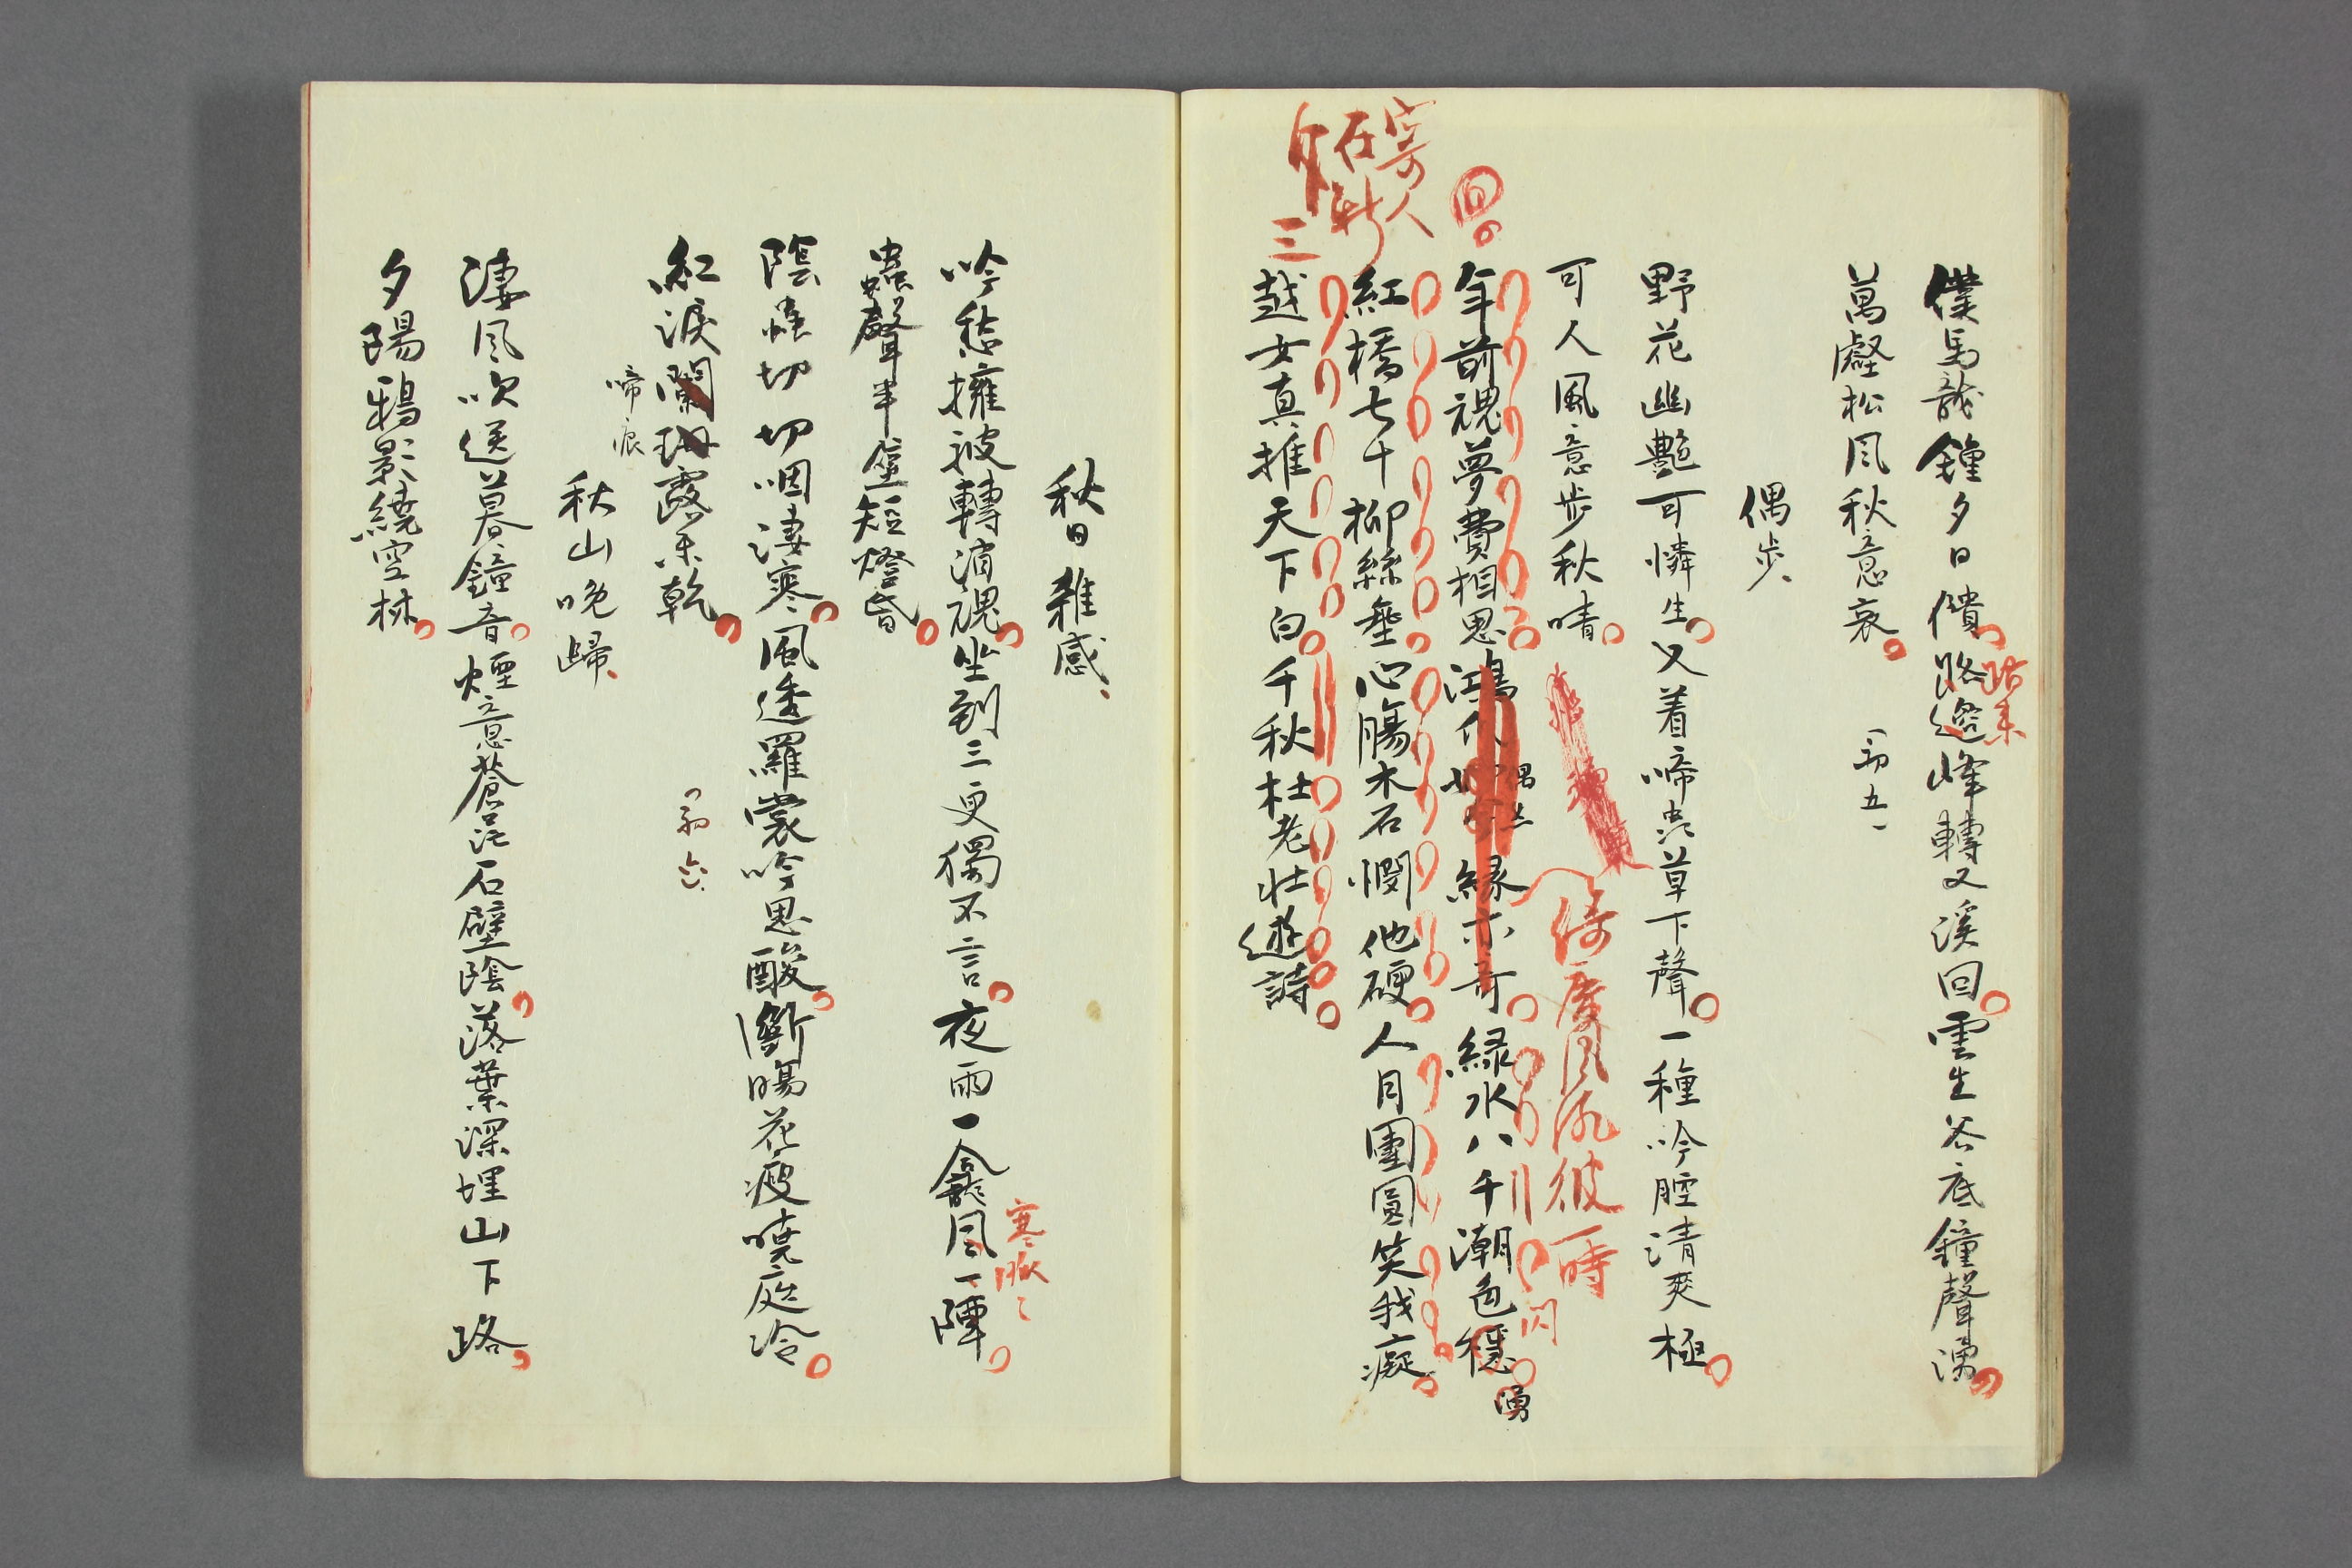 僕馬龍鍾夕日隤路邊峰轉又溪回雲生谷底鐘聲湧
萬壑松風秋意哀
偶步
野花幽艷可憐生又着啼虫草下聲一種吟腔清爽極
可人風意步秋晴
年前魂夢費相思 緣亦奇綠水八千潮色穩
湧
紅橋七十柳絲垂心腸木石憫他硬人月團圓笑我癡
越女真推天下白千秋杜老壯遊詩
寄人
在新
三
風流彼一時
閃
秋日雜感
吟愁擁被轉消魂坐到三更獨不言夜雨一龕風一陣
寒
蟲聲半壁短燈昏
陰蛩切切咽淒寒風透羅裳吟思酸斷腸花瘦曉庭冷
紅淚闌珊露未乾
啼痕
秋山晚歸
淒風吹送暮鐘音煙意蒼茫石壁陰落葉深埋山下路
夕陽鴉影繞空林